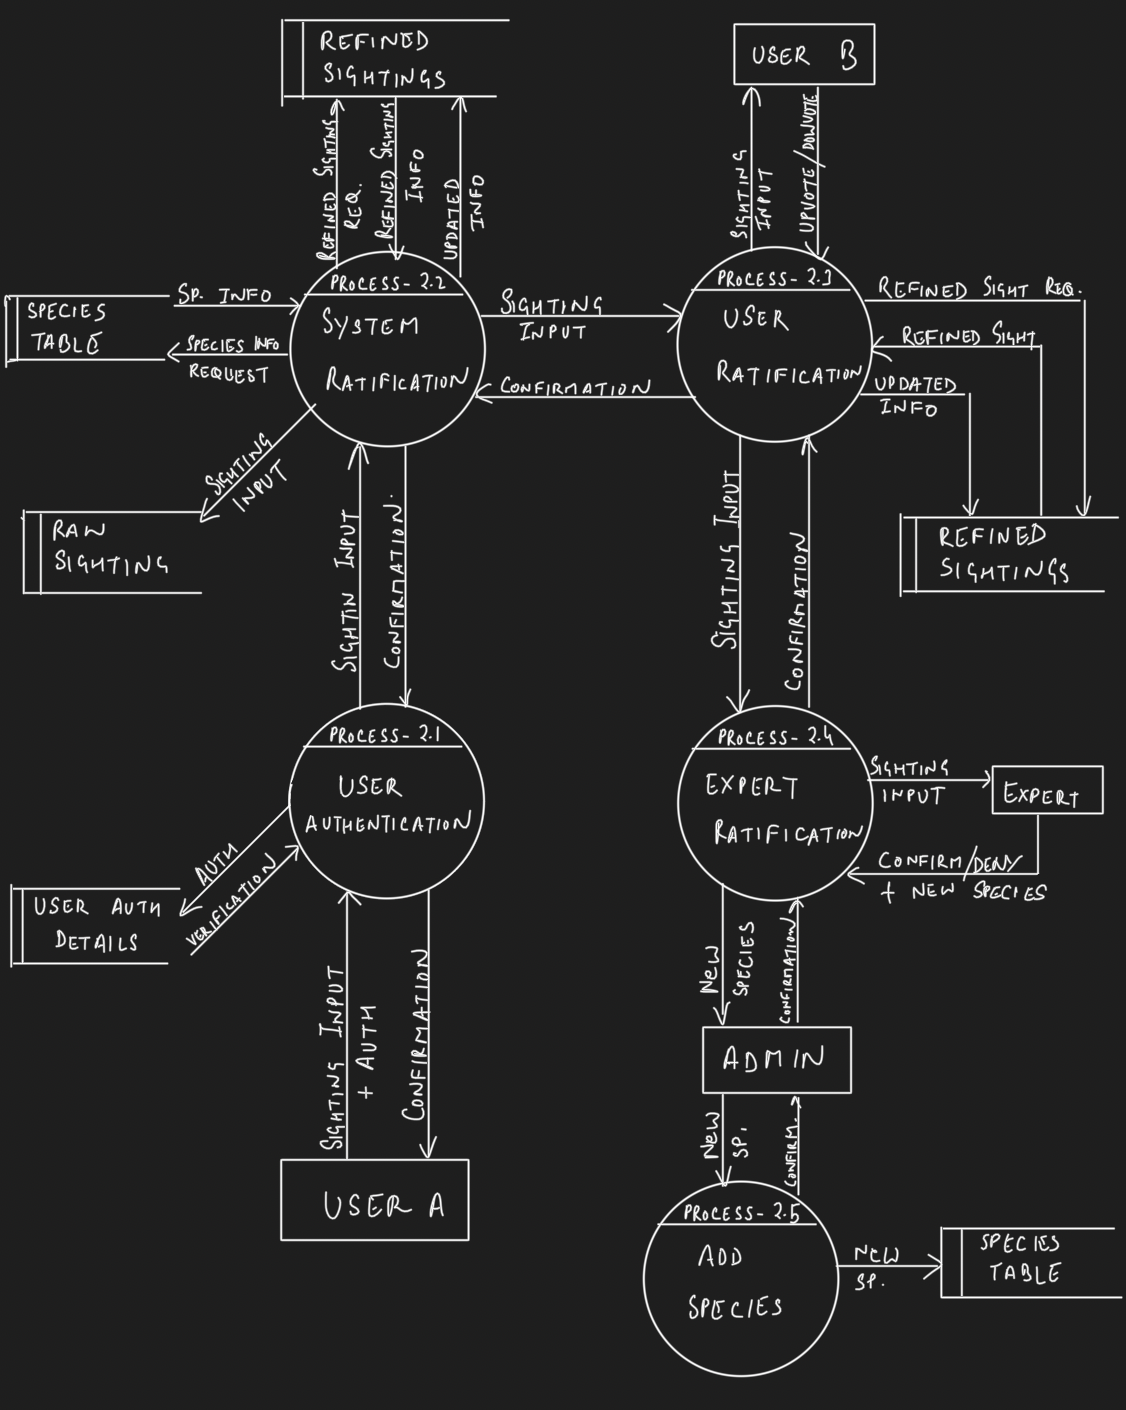 REFINED
SIGHTINGS
REFINED SIGHTING
REQ.
REFINED SIGHTING
INFO
UPDATED
INFO
USER B
SIGHTING
INPUT
UPVOTE/DOWVOTE
SPECIES
TABLE
SP. INFO
SPECIES INFO
REQUEST
PROCESS- 2.2
SYSTEM
RATIFICATION
SIGHTING
INPUT
CONFIRMATION
PROCESS- 2.3
USER
RATIFICATION
REFINED SIGHT REQ.
REFINED SIGHT
UPDATED
INFO
REFINED
SIGHTINGS
SIGHTING
INPUT
RAW
SIGHTING
SIGHTIN INPUT
CONFIRMATION.
SIGHTING INPUT
CONFIRMATION
PROCESS- 2.1
USER
AUTHENTICATION
AUTH
VERIFICATION
USER AUTH
DETAILS
PROCESS- 2.4
EXPERT
RATIFICATION
SIGHTING
INPUT
EXPERT
CONFIRM/DENY
+ NEW SPECIES
SIGHTING INPUT
+ AUTH
CONFIRMATION
USER A
NEW
SPECIES
CONFIRMATION
ADMIN
NEW
SP.
CONFIRM.
PROCESS- 2.5
ADD
SPECIES
NEW
SP.
SPECIES
TABLE